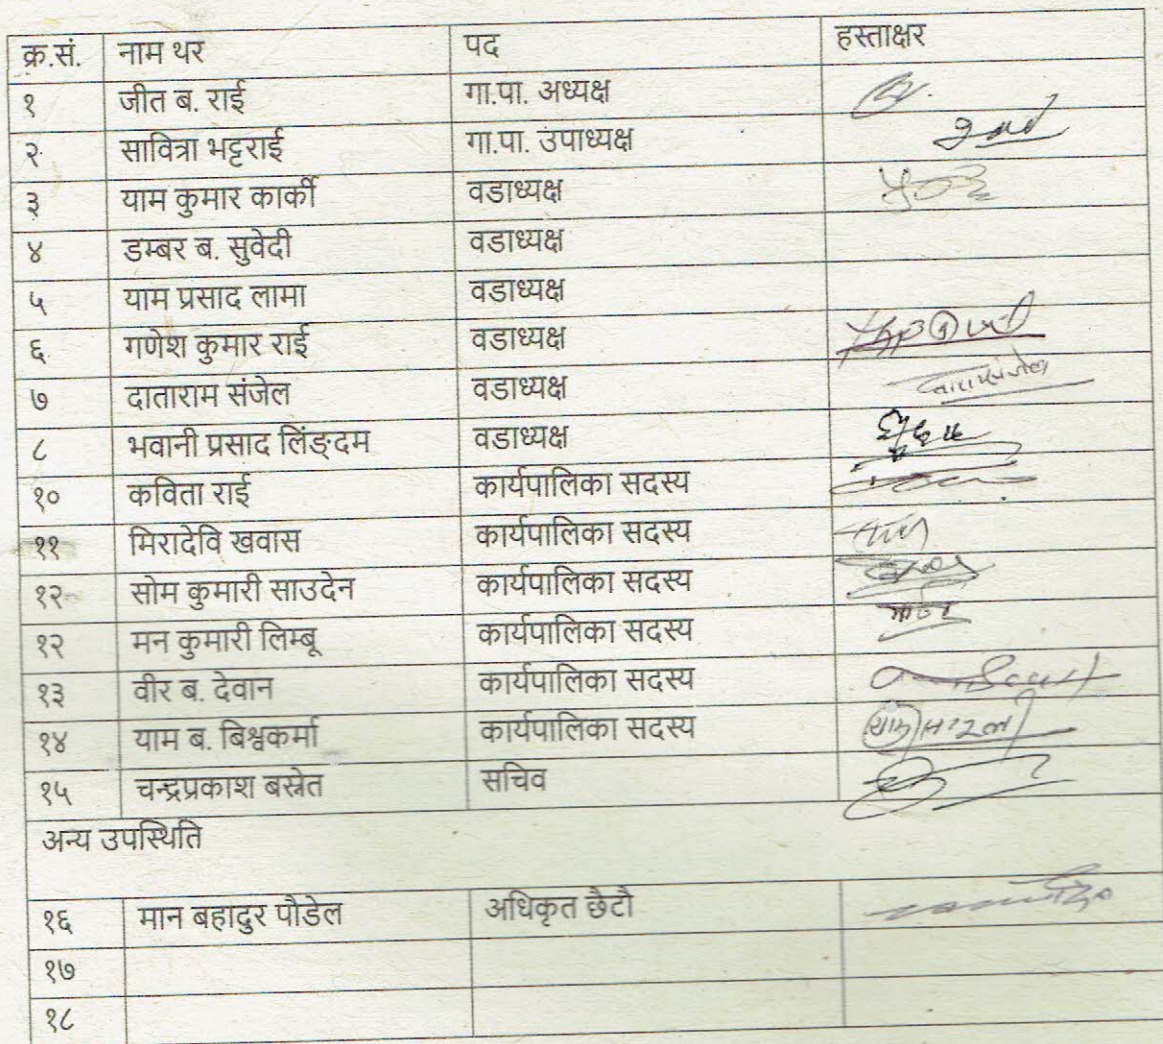 क्र.सं. नाम थर पद हस्ताक्षर
१ जीत ब. राई गा.पा. अध्यक्ष
२ सावित्रा भट्टराई गा.पा. उपाध्यक्ष
३ याम कुमार कार्की वडाध्यक्ष
४ डम्बर ब. सुवेदी वडाध्यक्ष
५ याम प्रसाद लामा वडाध्यक्ष
६ गणेश कुमार राई वडाध्यक्ष
७ दाताराम संजेल वडाध्यक्ष
८ भवानी प्रसाद लिंङ्दम वडाध्यक्ष
१० कविता राई कार्यपालिका सदस्य
११ मिरादेवि खवास कार्यपालिका सदस्य
१२ सोम कुमारी साउदेन कार्यपालिका सदस्य
१२ मन कुमारी लिम्बू कार्यपालिका सदस्य
१३ वीर ब. देवान कार्यपालिका सदस्य
१४ याम ब. बिश्वकर्मा कार्यपालिका सदस्य
१५ चन्द्रप्रकाश बस्नेत सचिव
अन्य उपस्थिति
१६ मान बहादुर पौडेल अधिकृत छैटौ
१७
१८